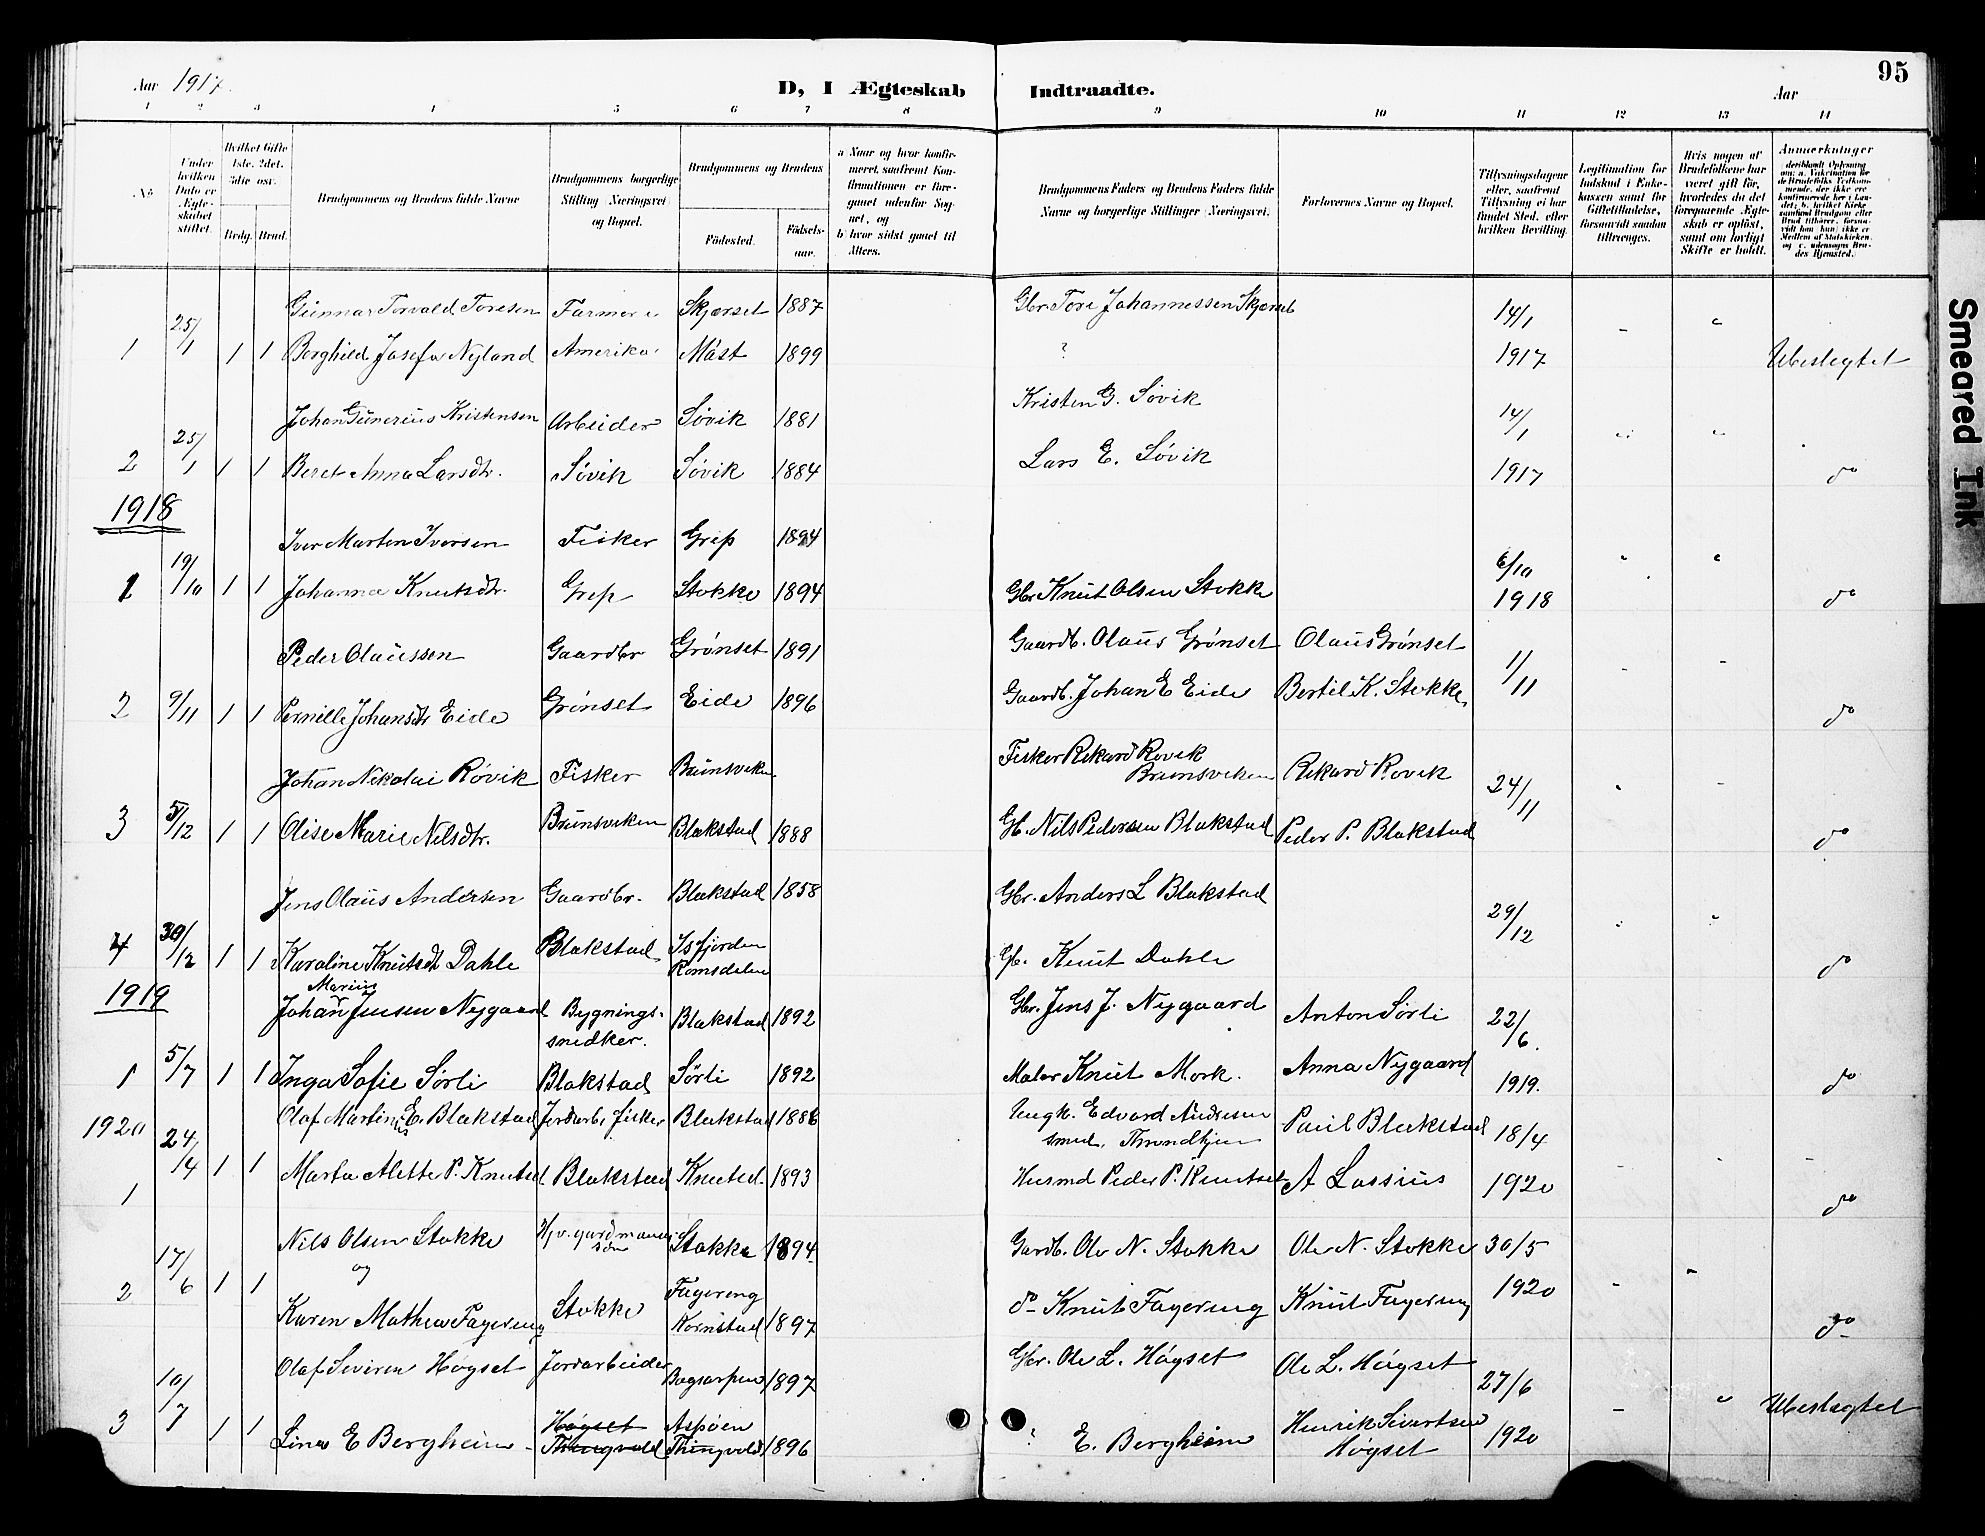 Aar 1917.
D, I Ægteskab Indtraadte.
Aar
95
1 2 3 4 5 6 7 8 9 10 11 12 13 14
No.
Under hvilken Dato er Ægteskabet stiftet.
Hvilket Gifte 1ste, 2det, 3die osv.
Brdg. Brud.
Brudgommens og Brudens fulde Navne
Brudgommens borgerlige Stilling (Næringsvei) og Bopæl.
Brudgommens og Brudens
Fødested. Fødselsaar.
a Naar og hvor konfirmeret, saafremt Konfirmationen er foregaaet udenfor Sognet, og
b) hvor sidst gaaet til Alters.
Brudgommens Faders og Brudens Faders fulde Navne og borgerlige Stillinger (Næringsvei).
Forlovernes Navne og Bopæl.
Tillysningsdagene eller, saafremt Tillysning ei har fundet Sted, efter hvilken Bevilling.
Legitimation for Indskud i Enkekassen samt for Giftetilladelse, forsaavidt saadan tiltrænges.
Hvis nogen af Brudefolkene har været gift før, hvorledes da det foregaaende Ægteskab er opløst, samt om lovligt Skifte er holdt.
Anmærkninger
Gunnar Torvald Toresen Farmer i Skjærset 1887 Gbr. Tore Johannessen Skjærset 14/1
1 25/1 1 1 Borghild Josefa Nyland Amerika Måst 1899 ? 1917 Ubeslegtet
Johan Gunerius Kristensen Arbeider Søvik 1881 Kristen G. Søvik 14/1
2 25/1 1 1 Beret Anna Larsdtr. Søvik Søvik 1884 Lars E. Søvik 1917 do
1918
Iver Marten Iversen Fisker Grip 1894 6/10
1 19/10 1 1 Johanna Knutsdtr. Grip Stokke 1894 Gbr. Knut Olsen Stokke 1918 do
Peder Olaussen Gaardbr Grønset 1891 Gaardb. Olaus Grønset Olaus Grønset 1/11
2 9/11 1 1 Pernille Johansdtr Eide Grønset Eide 1896 Gaardb. Johan E Eide Bertil K. Stokke do
Johan Nikolai Røvik Fisker Brunsviken Fisker Rikard Rovik Brunsviken Rikard Rovik 24/11
3 5/12 1 1 Olise Marie Nilsdtr. Brunsviken Blakstad 1888 Gb. Nils Pedersen Blakstad Peder P. Blakstad do
Jens Olaus Andersen Gaardbr. Blakstad 1858 Gbr. Anders L Blakstad 29/12
4 30/12 1 1 Karoline Knutsdt Dahle Blakstad Isfjorden Romsdalen Gb. Knut Dahle do
1919
Johan Marius Jensen Nygaard Bygningssnedker. Blakstad 1892 Gbr. Jens J. Nygaard Anton Sørli 22/6.
1 5/7 1 1 Inga Sofie Sørli Blakstad Sørli 1892 Maler Knut Mork. Anna Nygaard 1919. do
1920
Olaf Martinius E. Blakstad Jordarb. fisker Blakstad 1886 Ungk. Edvard Andresen smed, Trondhjem Paul Blakstad 18/4
1 24/4 1 1 Marta Alette P. Knutsd Blakstad Knutsd. 1893 Husmd Peder P. Knutset A Lossius 1920 do
Nils Olsen Stokke Hjv. gardmannssøn Stokke 1894 Gardb. Ole N. Stokke Ole N. Stokke 30/5
og
2 17/6 1 1 Karen Mathea Fagereng Stokke Fagereng Kornstad 1897 do Knut Fagereng Knut Fagereng 1920 do
Olaf Severen Høgset Jordarbeider 1897 Gbr. Ole L. Høgset Ole L. Høgset 27/6
3 10/7 1 1 Lina E Bergheim Høgset Thingvold Aspøen Thingvold 1896 ? E. Bergheim Henrik Sivertsen Høgset 1920 Ubeslegtet
Smeared Ink